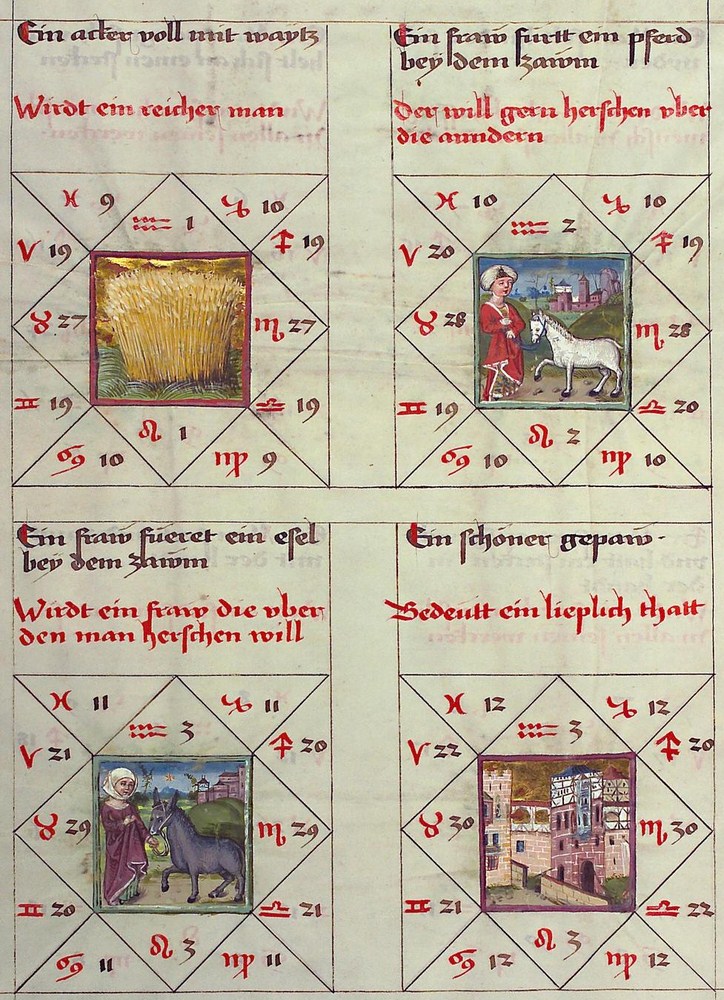 Ein acker voll mit waytz
Wirdt ein reicher man
♓ 9
♒ 1
♑ 10
♈ 19
♐ 19
♉ 27
♏ 27
♊ 19
♎ 19
♋ 10
♌ 1
♍ 9
Ein fraw fürtt ein pferd
bey dem zawm
Der will gern herschen vber
die anndern
♓ 10
♒ 2
♑ 10
♈ 20
♐ 19
♉ 28
♏ 28
♊ 19
♎ 20
♋ 10
♌ 2
♍ 10
Ein fraw füeret ein esel
bey dem zawm
Wirdt ein fraw die vber
den man herschen will
♓ 11
♒ 3
♑ 11
♈ 21
♐ 20
♉ 29
♏ 29
♊ 20
♎ 21
♋ 11
♌ 3
♍ 11
Ein schöner gepaw
Bedeutt ein lieplich thatt
♓ 12
♒ 3
♑ 12
♈ 22
♐ 20
♉ 30
♏ 30
♊ 21
♎ 22
♋ 12
♌ 3
♍ 12